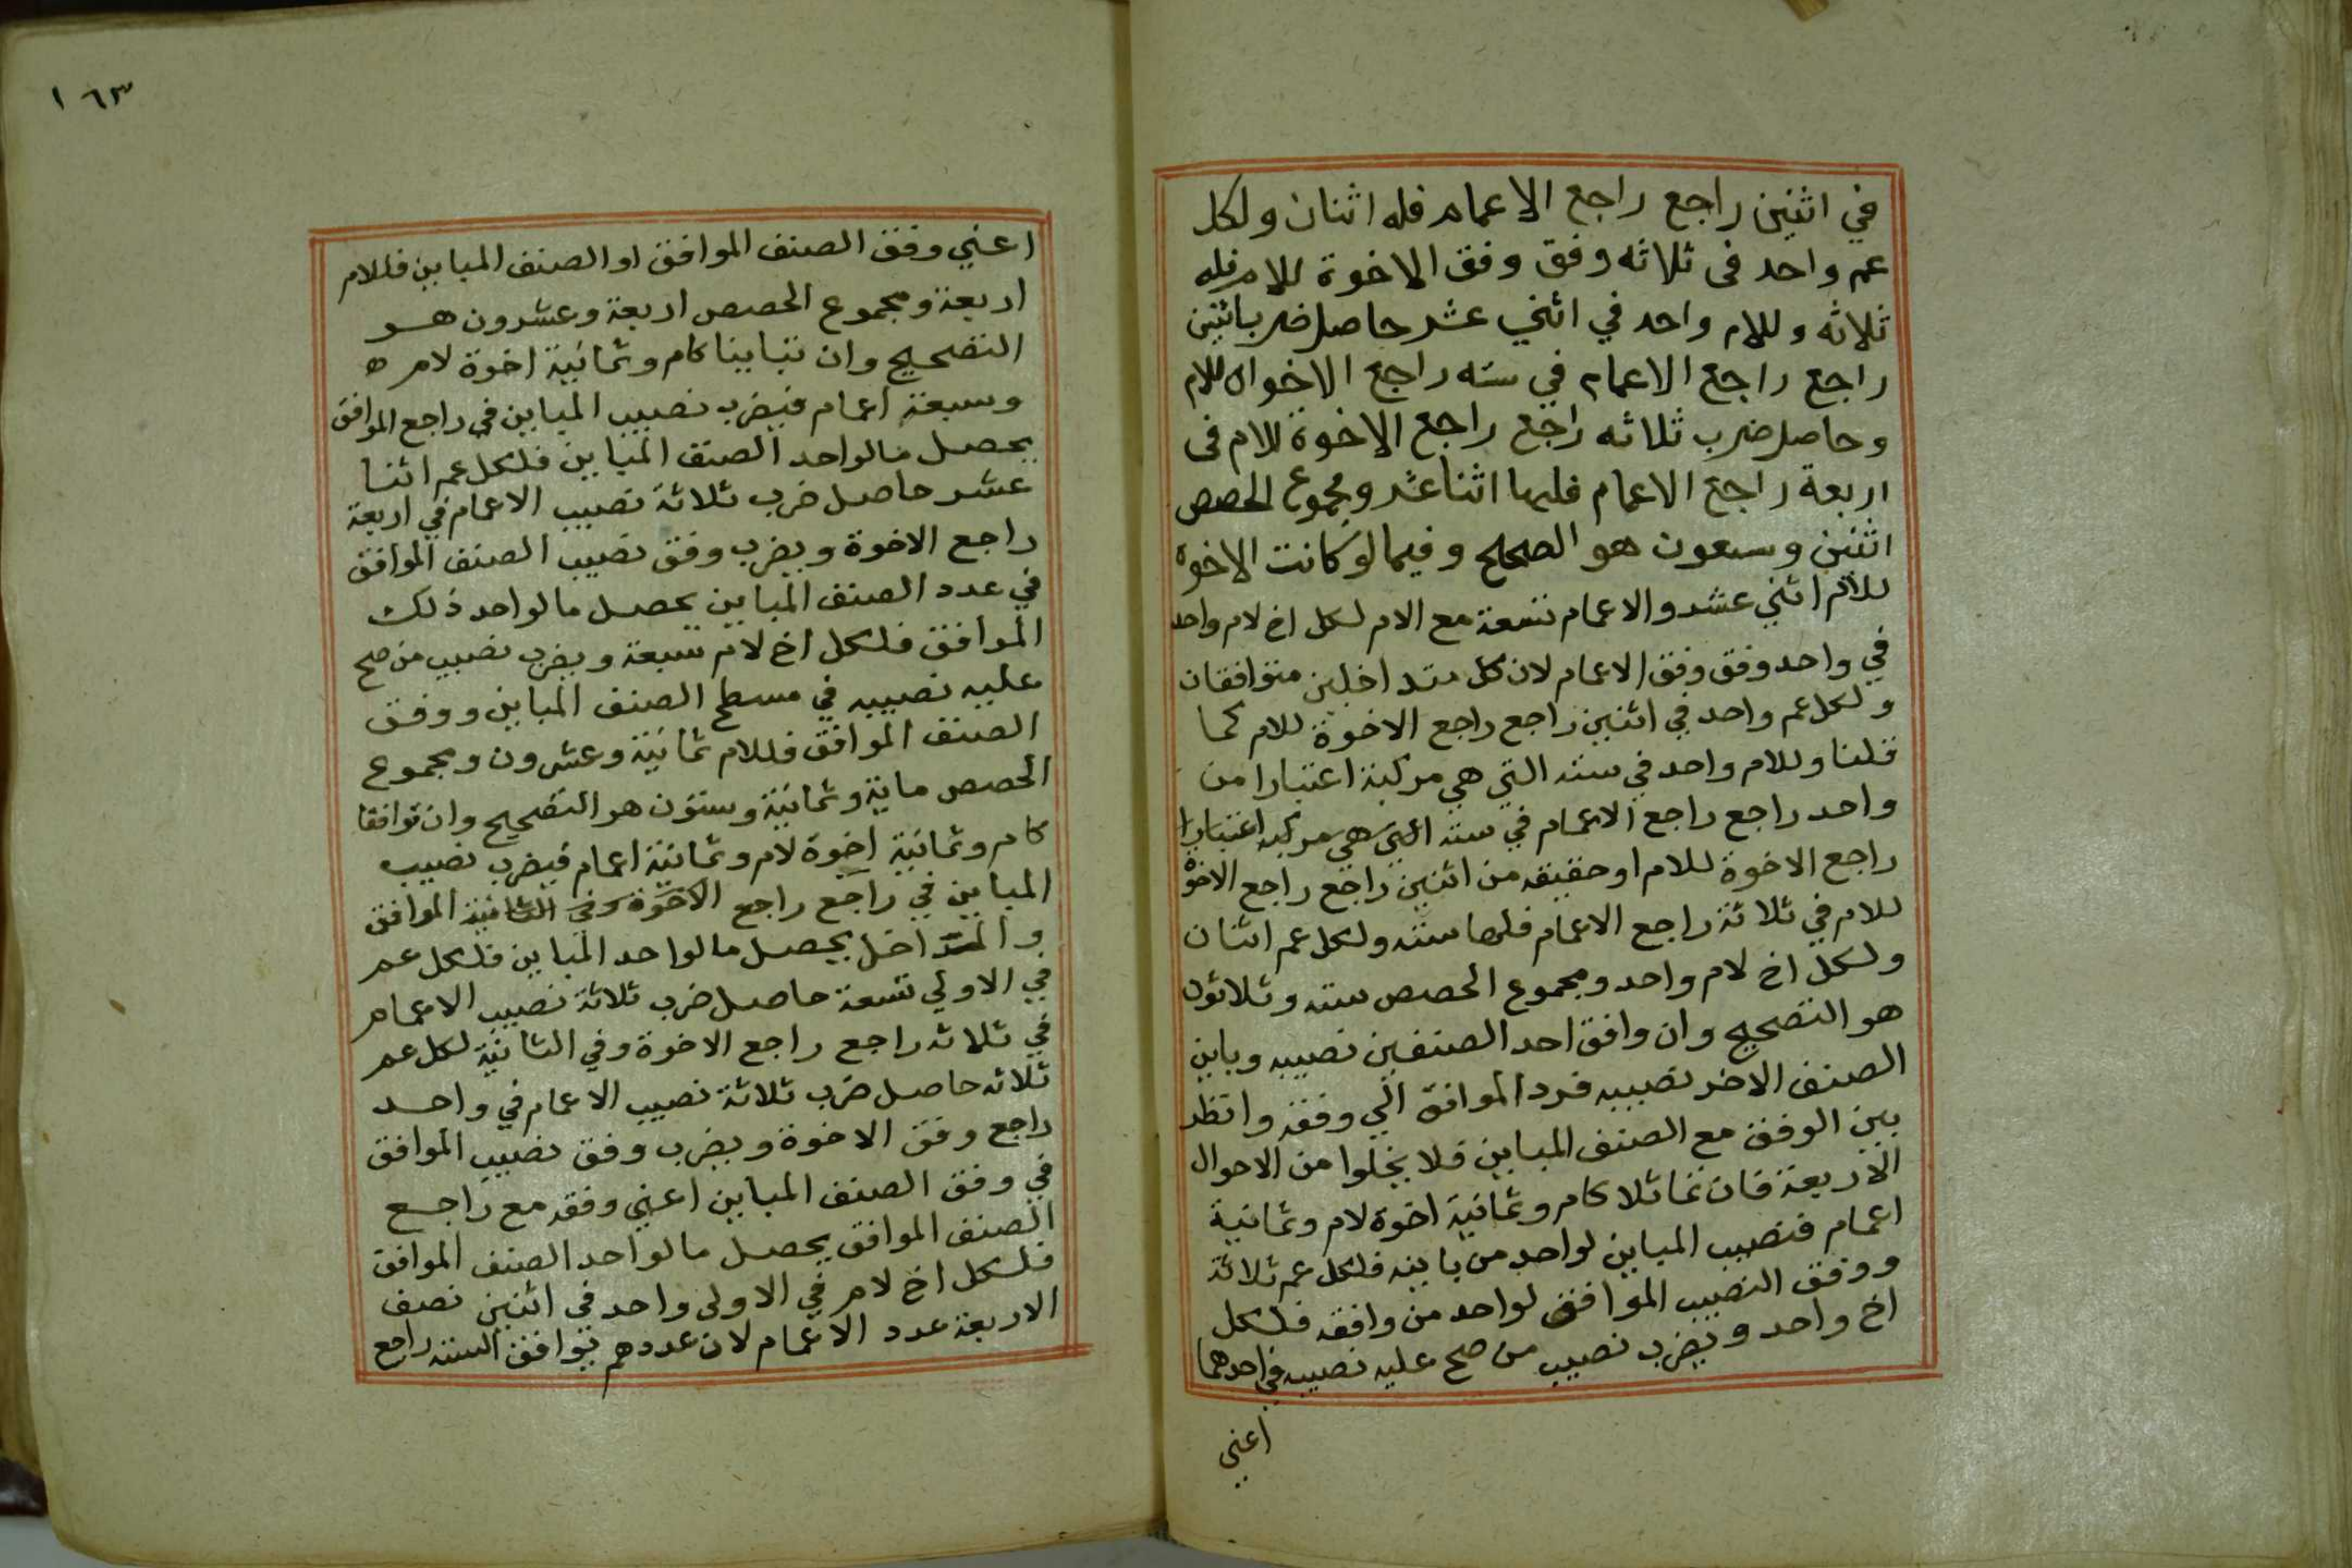 في اثنين راجع راجع الاعمام فله اثنان ولكل
عم واحد فى ثلاثه وفق وفق الاخوة للام فله
ثلاثه وللام واحد في اثني عشر حاصل ضرب اثنين
راجع راجع الاعمام في سته راجع الاخوال للام
وحاصل ضرب ثلاثه راجع راجع الاخوة للام فى
اربعة راجع الاعمام فلها اثنا عشر ومجموع الحصص
اثنين وسبعون هو الصحيح وفيما لو كانت الاخوة
للام اثني عشر والاعمام تسعة مع الام لكل اخ لام واحد
في واحد وفق وفق الاعمام لان كل متداخلين متوافقان
ولكل عم واحد في اثنين راجع راجع الاخوة للام كما
قلنا وللام واحد في سته التي هي مركبة اعتبارا من
واحد راجع راجع الاعمام في سته التي هي مركبه اعتبارا
راجع الاخوة للام او حقيقه من اثنين راجع راجع الاخوة
للام في ثلاثة راجع الاعمام فلها سته ولكل عم اثنان
ولكل اخ لام واحد ومجموع الحصص سته وثلاثون
هو التصحيح وان وافق احد الصنفين نصيبه وباين
الصنف الاخر نصيبه فرد الموافق الي وفقه وانظر
بين الوفق مع الصنف المباين فلا يخلوا من الاحوال
الاربعة فان تماثلا كام وثمانية اخوة لام وثمانية
اعمام فنصيب المباين لواحد من باينه فلكل عم ثلاثة
ووفق النصيب الموافق لواحد من وافقه فلكل
اخ واحد ويضرب نصيب من صح عليه نصيبه في احدهما
اعني
١٦٣
اعني وفق الصنف الموافق او الصنف المباين فللام
اربعة ومجموع الحصص اربعة وعشرون هو
التصحيح وان تباينا كام وثمانية اخوة لام ه
وسبعة اعمام فيضرب نصيب المباين في راجع الموافق
يحصل مالواحد الصنف المباين فلكل عم اثنا
عشر حاصل ضرب ثلاثة نصيب الاعمام في اربعة
راجع الاخوة ويضرب وفق نصيب الصنف الموافق
في عدد الصنف المباين يحصل مالواحد ذلك
الموافق فلكل اخ لام سبعة ويضرب نصيب من صح
عليه نصيبه في مسطح الصنف المباين ووفق
الصنف الموافق فللام ثمانية وعشرون ومجموع
الحصص ماية وثمانية وستون هو التصحيح وان توافقا
كام وثمانية اخوة لام وثمانية اعمام فيضرب نصيب
المباين في راجع راجع الاخوة وفي الثانية الموافق
والمتداخل يحصل مالواحد المباين فلكل عم
في الاولي تسعة حاصل ضرب ثلاثة نصيب الاعمام
في ثلاثه راجع راجع الاخوة وفي الثانية لكل عم
ثلاثه حاصل ضرب ثلاثة نصيب الاعمام في واحد
راجع وفق الاخوة ويضرب وفق نصيب الموافق
في وفق الصنف المباين اعني وفقه مع راجع
الصنف الموافق يحصل مالواحد الصنف الموافق
فلكل اخ لام في الاولى واحد في اثنين نصف
الاربعة عدد الاعمام لان عددهم توافق السته راجع